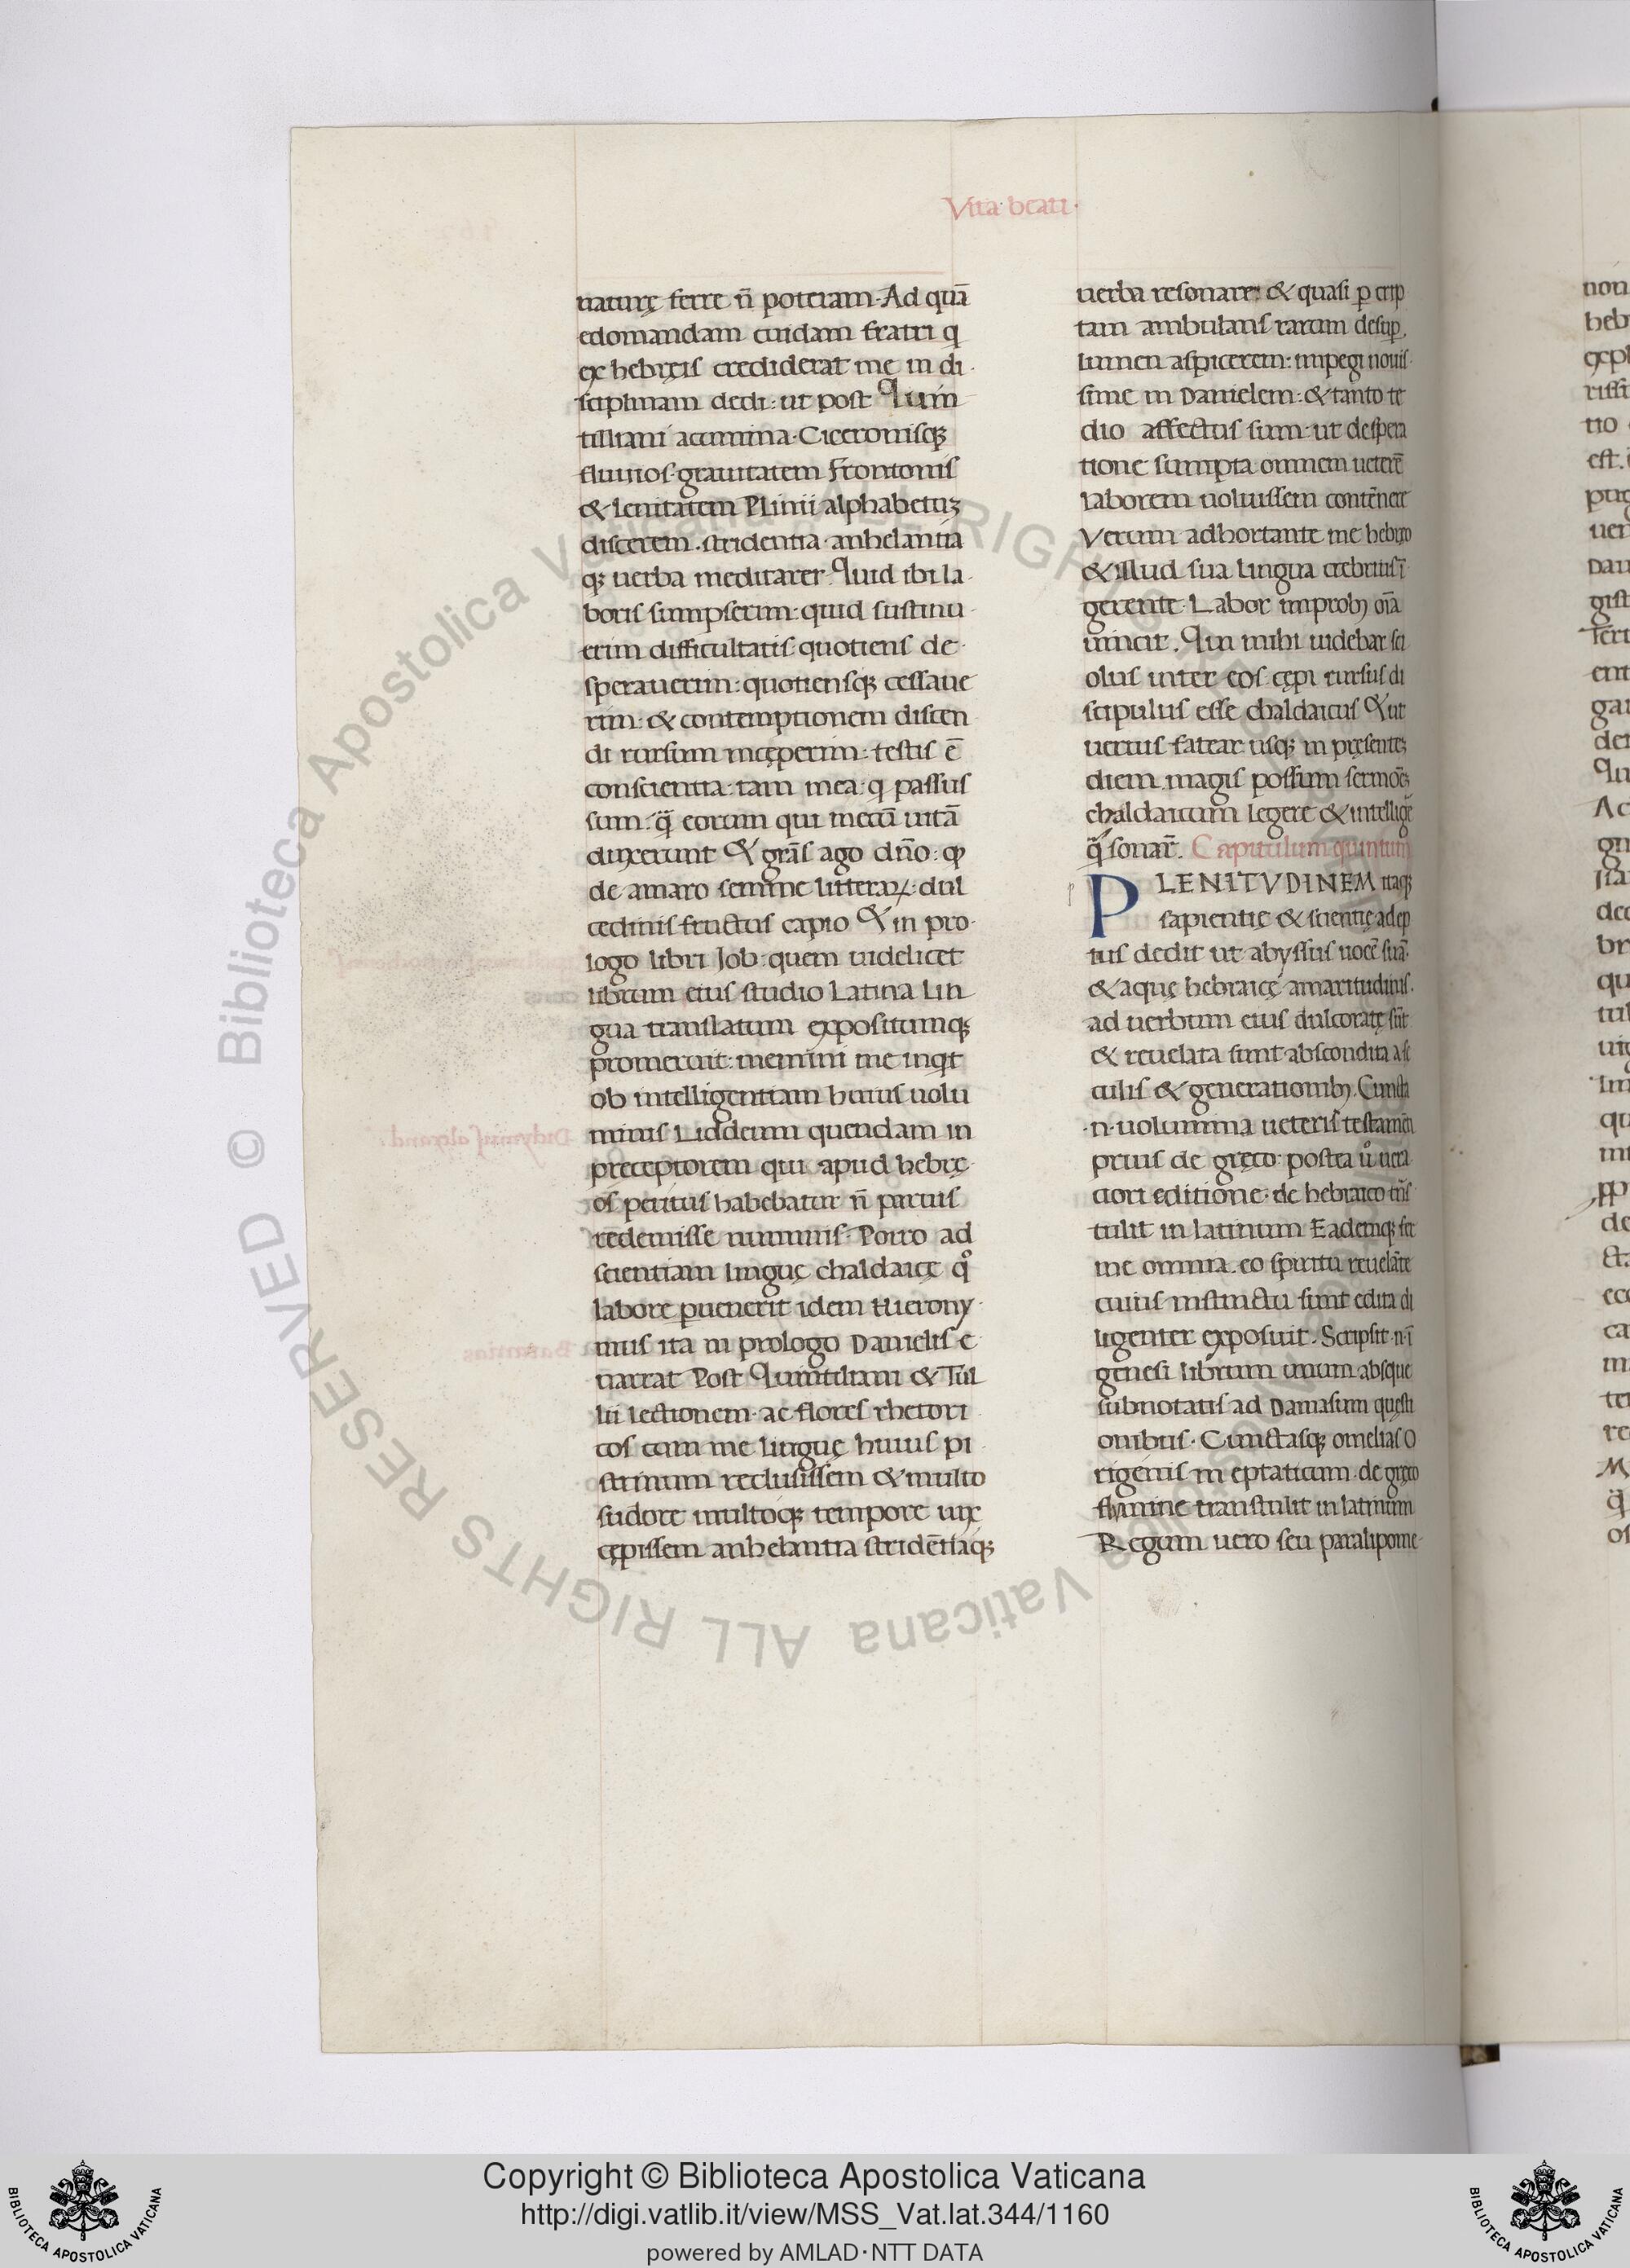 Vita beati·
naturę ferre n̄ poteram·Ad quā
edomandam cuidam fratri q
ex hebręis crediderat me in di
sciplinam dedi: ut post Quin
tilliani acumina·Ciceronisqꝫ
fluuios·grauitatem Frontonis
& lenitatem Plinii alphabetuꝫ
discerem·stridentia·anhelantia
qꝫ uerba meditarer. Quid ibi la
boris sumpserim: quid sustinu
erim difficultatis: quotiens de
sperauerim: quotiensqꝫ cessaue
rim: & contemptionem discen
di rursum incęperim: testis ē
conscientia: tam mea: q passus
sum: q̄ eorum qui mecū uitā
duxerunt Et grās ago dño: ꝙ
de amaro semine litteraꝝ: dul
cedinis fructus capio Et in pro
logo libri Job: quem uidelicet
librum eius studio Latina lin
gua translatum expositumqꝫ
promeruit: memini me inqt
ob intelligentiam huius uolu
minis Liddeum quendam in
preceptorem qui apud hebrę
os peritus habebatur n̄ paruis
redemisse nummis· Porro ad
scientiam linguę chaldaicę qͦ
labore puenerit idem Hierony
mus ita in prologo Danielis e
narrat Post Quintiliani & Tul
lii lectionem·ac flores rhetori
cos cum me linguę huius pi
strinum reclusissem & multo
sudore multoqꝫ tempore uix
cępissem anhelantia stridētiaqꝫ
uerba resonare: & quasi ꝑ crip
tam ambulans rarum desuꝑ
lumen aspicerem: impegi nouis
sime in Danielem: & tanto te
dio affectus sum: ut despera
tione sumpta omnem ueterē
laborem uoluissem contēnere
Verum adhortante me hebręo
& illud sua lingua crebrius ī
gerente· Labor improbꝫ oīa
uincit. Qui mihi uidebar sci
olus inter eos cępi rursus di
scipulus esse chaldaicus Et ut
uerius fatear usqꝫ in pręsenteꝫ
diem magis possum sermonēꝫ
chaldaicum legere & intelligē
q̄ sonar̄. Capitulum quintum
p
PLENITVDINEM itaqꝫ
sapientię & scientię adep
tus dedit ut abyssus uocē suā·
& aquę hebraicę amaritudinis·
ad uerbum eius dulcoratę sūt
& reuelata sunt·abscondita a se
culis & generationibꝫ. Cuncta
·n·uolumina ueteris testamēti
prius de gręco: postea ů uera
tiori editione·de hebraico trās
tulit in latinum Eademqꝫ fer
me omnia·eo spiritu reuelāte
cuius instinctu sunt edita di
ligenter exposuit. Scripsit·n·ī
genesi librum unum absque
subnotatis ad Damasum questi
onibus· Cunctasqꝫ omelias O
rigenis in eptaticum·de gręco
flumine transtulit in latinum
Regum uero seu paralipome
© Biblioteca Apostolica Vaticana ALL RIGHTS RESERVED
Copyright © Biblioteca Apostolica Vaticana
http://digi.vatlib.it/view/MSS_Vat.lat.344/1160
powered by AMLAD·NTT DATA
BIBLIOTECA APOSTOLICA VATICANA
BIBLIOTECA APOSTOLICA VATICANA